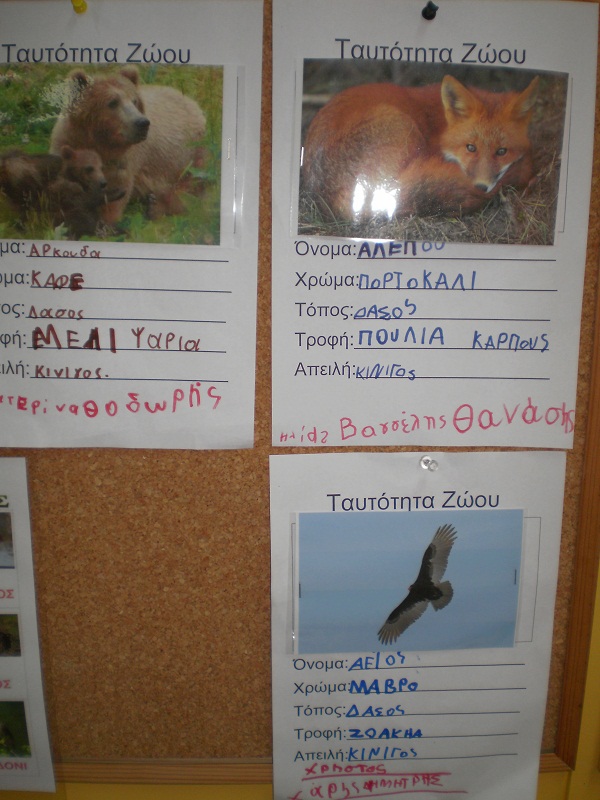 Ταυτότητα Ζώου
μα: Αρκουδα
ώμα: ΚΑΦΕ
ος: Δασος
φή: ΜΕΛΙ ΨΑΡΙΑ
ιλή: κινιγος.
τερίνα Θοδωρής
Ταυτότητα Ζώου
Όνομα: ΑΛΕΠΟΥ
Χρώμα: ΠΟΡΤΟΚΑΛΙ
Τόπος: ΔΑΣΟΣ
Τροφή: ΠΟΥΛΙΑ ΚΑΡΠΟΥΣ
Απειλή: ΚΙΝΙΓΟς
Βασσέλης Θανάσης
Ταυτότητα Ζώου
Όνομα: ΑΕΤΟΣ
Χρώμα: ΜΑΒΡΟ
Τόπος: ΔΑΣΟΣ
Τροφή: ΖΟΑΚΗΑ
Απειλή: ΚΙΝΙΓΟΣ
ΧΡΗΣΤΟΣ
Σ
ΟΣ
Σ
SONI